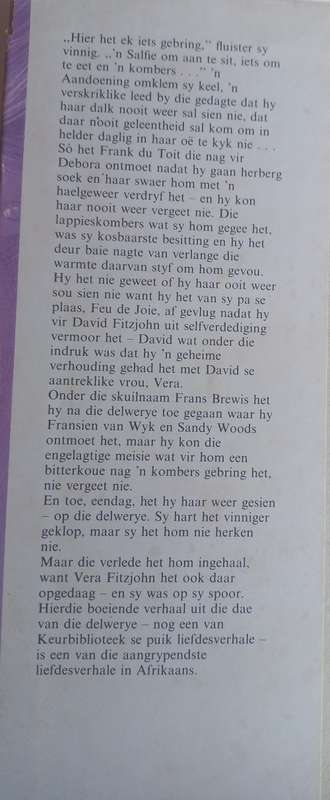 „Hier het ek iets gebring,” fluister sy
vinnig. „’n Salfie om aan te sit, iets om
te eet en ’n kombers . . .” ’n
Aandoening omklem sy keel, ’n
verskriklike leed by die gedagte dat hy
haar dalk nooit weer sal sien nie, dat
daar nooit geleentheid sal kom om in
helder daglig in haar oë te kyk nie . . .
Só het Frank du Toit die nag vir
Debora ontmoet nadat hy gaan herberg
soek en haar swaer hom met ’n
haelgeweer verdryf het – en hy kon
haar nooit weer vergeet nie. Die
lappieskombers wat sy hom gegee het,
was sy kosbaarste besitting en hy het
deur baie nagte van verlange die
warmte daarvan styf om hom gevou.
Hy het nie geweet of hy haar ooit weer
sou sien nie want hy het van sy pa se
plaas, Feu de Joie, af gevlug nadat hy
vir David Fitzjohn uit selfverdediging
vermoor het – David wat onder die
indruk was dat hy ’n geheime
verhouding gehad het met David se
aantreklike vrou, Vera.
Onder die skuilnaam Frans Brewis het
hy na die delwerye toe gegaan waar hy
Fransien van Wyk en Sandy Woods
ontmoet het, maar hy kon die
engelagtige meisie wat vir hom een
bitterkoue nag ’n kombers gebring het,
nie vergeet nie.
En toe, eendag, het hy haar weer gesien
– op die delwerye. Sy hart het vinniger
geklop, maar sy het hom nie herken
nie.
Maar die verlede het hom ingehaal,
want Vera Fitzjohn het ook daar
opgedaag – en sy was op sy spoor.
Hierdie boeiende verhaal uit die dae
van die delwerye – nog een van
Keurbiblioteek se puik liefdesverhale –
is een van die aangrypendste
liefdesverhale in Afrikaans.